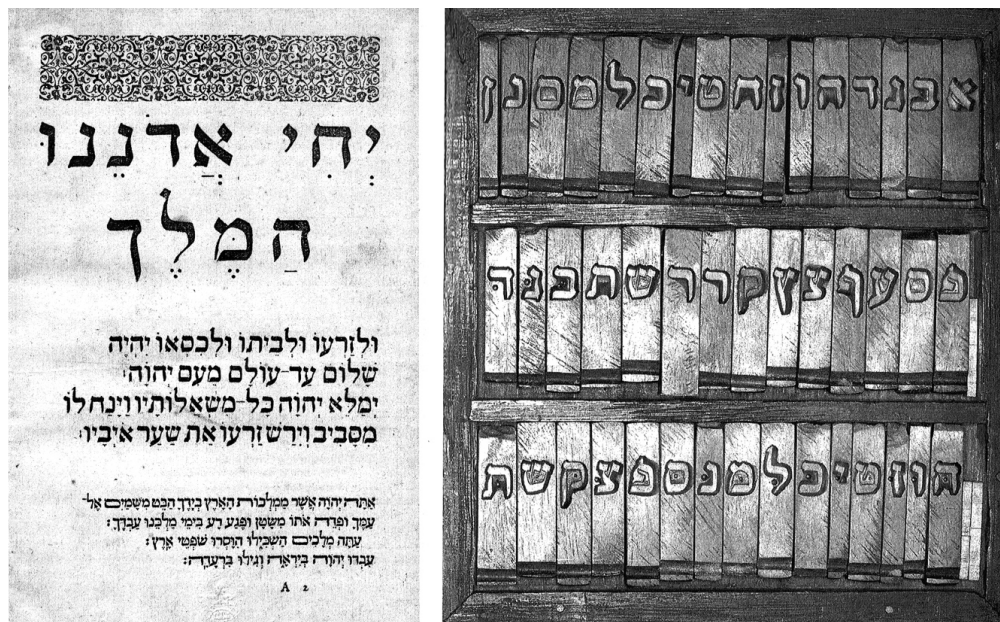 יְחִי אֲדֹנֵנוּ
הַמֶּלֶךְ
וּלְזַרְעוֹ וּלְבֵיתוֹ וּלְכִסְאוֹ יִהְיֶה
שָׁלוֹם עַד־עוֹלָם מֵעִם יְהוָה׃
יְמַלֵּא יְהוָה כָּל־מִשְׁאֲלוֹתָיו וְיַנְחִלוֹ
מִסָּבִיב וְיִרַשׁ זַרְעוֹ אֶת שַׁעַר אֹיְבָיו׃
אַתָּה יְהוָה אֲשֶׁר מַמְלְכוֹת הָאָרֶץ בְּיָדֶךָ הַבֵּט מִשָּׁמַיִם אֶל־
עַמְּךָ וּפְדֵה אֹתוֹ מִשָּׂטָן וּפֶגַע רָע בִּימֵי מַלְכֵּנוּ עַבְדֶּךָ׃
עַתָּה מְלָכִים הַשְׂכִּילוּ הִוָּסְרוּ שֹׁפְטֵי אָרֶץ׃
עִבְדוּ יְהוָה בְּיִרְאָה וְגִילוּ בִּרְעָדָה׃
A 2
א ב ג ד ה ו ז ח ט י כ ל מ ם נ ן
פ ס ע ף צ ץ ק ר ר ש ת בּ גּ דּ
ה ו ז ט י כ ל מ נ ס פ צ ק ש ת